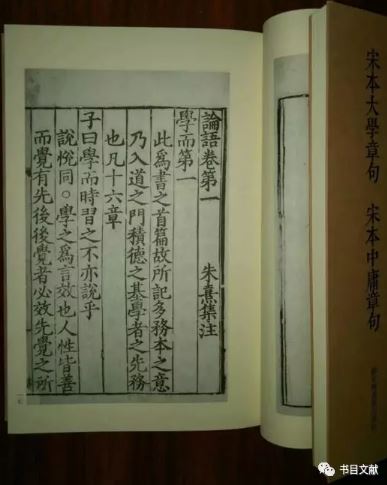 論語卷第一 朱熹集注
學而第一
此爲書之首篇故所記多務本之意
乃入道之門積德之基學者之先務
也凡十六章
子曰學而時習之不亦說乎
說悅同○學之爲言效也人性皆善
而覺有先後後覺者必效先覺之所
宋本大學章句 宋本中庸章句
书目文献